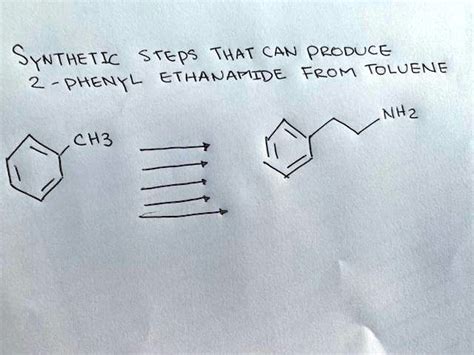 SYNTHETIC STEPS THAT CAN PRODUCE
2 - PHENYL ETHANAMIDE FROM TOLUENE
CH3
NH2